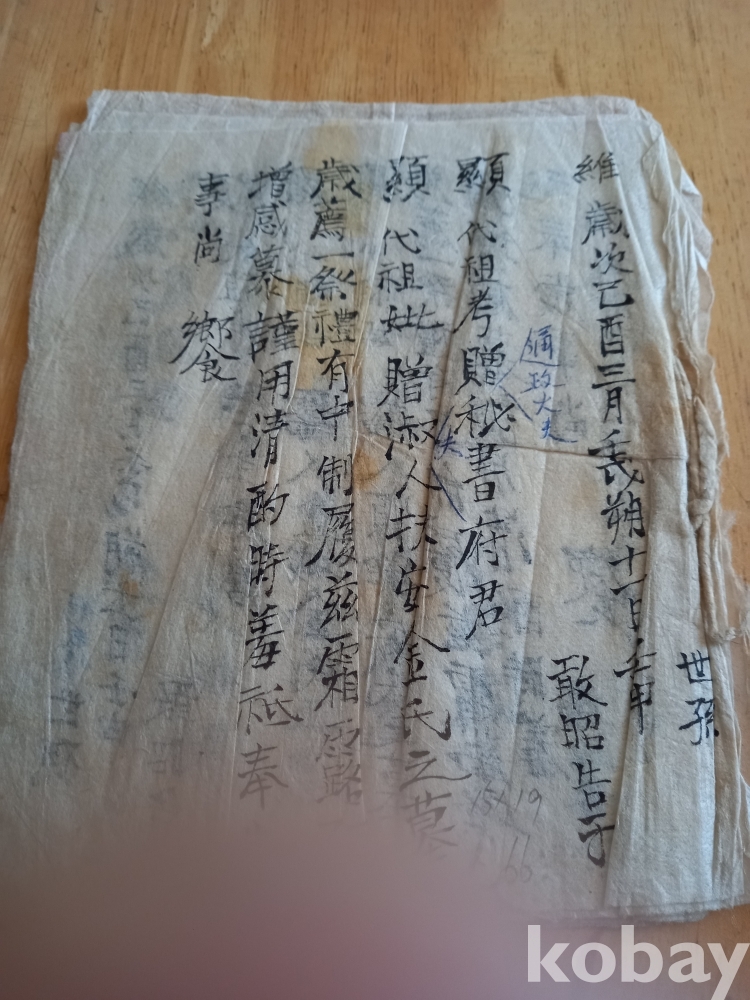 維 歲次己酉三月壬戌朔十一日壬申
世孫
敢昭告于
通政大夫
顯 代祖考贈秘書府君
夫
顯 代祖妣 贈淑人扶安金氏之墓
歲薦一祭禮有中制履茲霜露
增感慕謹用清酌時羞祗奉
事尚
饗
kobay